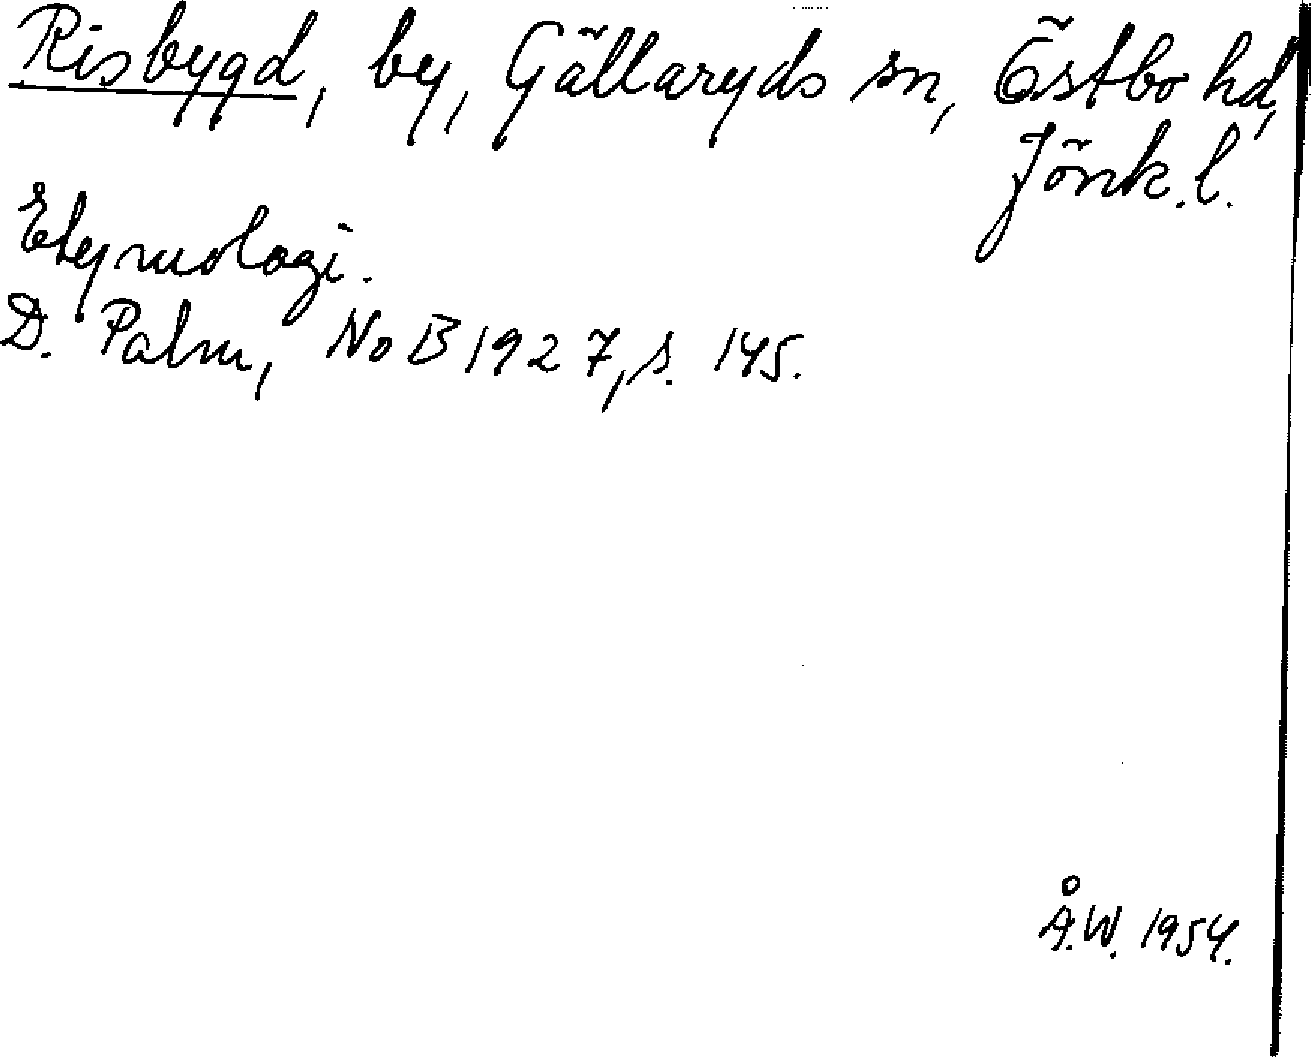 Risbygd, by, Gällaryds sn, Östbo hd,
Jönk. l.
Etymologi.
D. Palm, NoB 1927, s. 145.
Å.W. 1954.